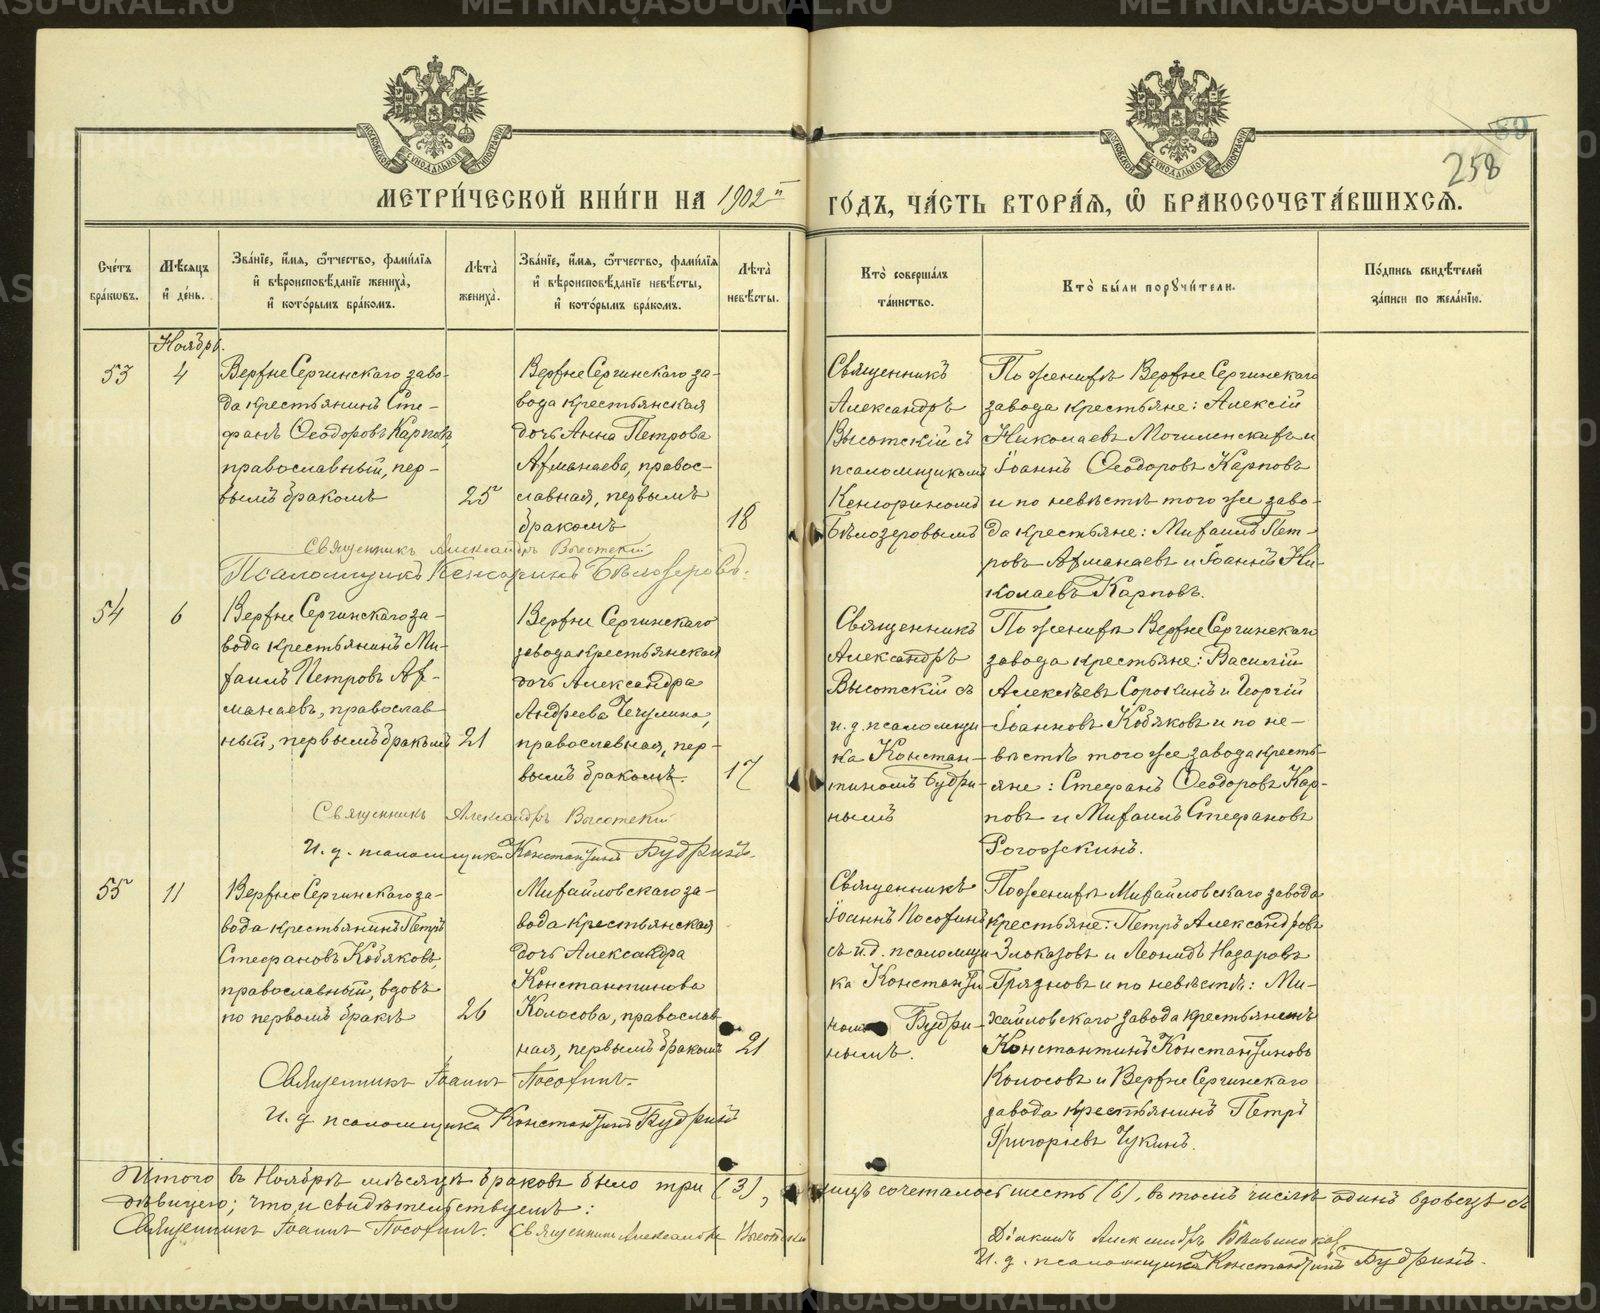 МЕТРИ́ЧЕСКОЙ КНИ́ГИ НА 1902й ГО́ДЪ, ЧА́СТЬ ВТОРА́Я, Ѡ БРАКОСОЧЕТА́ВШИХСЯ.
258
Сче́тъ бра́ковъ.
Мѣ́сяцъ и҆ де́нь.
Зва́нїе, и҆́мя, ѻ҆́тчество, фами́лїя
и҆ вѣроисповѣ́данїе жениха̀,
и҆ кото́рымъ бра́комъ.
Лѣ́та
жениха̀.
Зва́нїе, и҆́мя, ѻ҆́тчество, фами́лїя
и҆ вѣроисповѣ́данїе невѣ́сты,
и҆ кото́рымъ бра́комъ.
Лѣ́та
невѣ́сты.
Кто̀ соверша́лъ
та́инство.
Кто̀ бы́ли порꙋчи́тели.
По́дпись свидѣ́телей
за́писи по жела́нїю.
Ноябрь.
53
4
Верхне Сергинскаго заво-
да крестьянинъ Сте-
фанъ Ѳеодоровъ Карповъ,
православный, пер-
вымъ бракомъ
25
Верхне Сергинскаго за-
вода крестьянская
дочь Анна Петрова
Ахманаева, правос-
лавная, первымъ
бракомъ
18
Священникъ
Александръ
Высотскій съ
псаломщикомъ
Кенсориномъ
Бѣлозеровымъ
По женихѣ Верхне Сергинскаго
завода крестьяне: Алексій
Николаевъ Могиленскихъ и
Іоаннъ Ѳеодоровъ Карповъ
и по невѣстѣ того же заво-
да крестьяне: Михаилъ Пет-
ровъ Ахманаевъ и Іоаннъ Ни-
колаевъ Карповъ.
Священникъ Александръ Высотскій
Псаломщикъ Кенсоринъ Бѣлозеровъ.
54
6
Верхне Сергинскаго за-
вода крестьянинъ Ми-
хаилъ Петровъ Ах-
манаевъ, православ
ный, первымъ бракомъ
21
Верхне Сергинскаго
завода крестьянская
дочь Александра
Андреева Чечулина,
православная, пер-
вымъ бракомъ.
17
Священникъ
Александръ
Высотскій съ
и. д. псаломщи
ка Констан-
тиномъ Будри-
нымъ
По женихѣ Верхне Сергинскаго
завода крестьяне: Василій
Алексѣевъ Сорокинъ и Георгій
Іоанновъ Кобяковъ и по не-
вѣстѣ того же завода кресть-
яне: Стефанъ Ѳеодоровъ Кар-
повъ и Михаилъ Стефановъ
Рогожкинъ.
Священникъ Александръ Высотскій
И. д. псаломщика Константинъ Будринъ.
55
11
Верхне Сергинскаго за-
вода крестьянинъ Петръ
Стефановъ Кобяковъ,
православный, вдовъ
по первомъ бракѣ
26
Михайловскаго за-
вода крестьянская
дочь Александра
Константинова
Колосова, православ
ная, первымъ бракомъ
21
Священникъ
Іоаннъ Посохинъ
съ и. д. псаломщи
ка Константи
номъ Будри-
нымъ.
По женихѣ Михайловскаго завода
крестьяне: Петръ Александровъ
Злоказовъ и Леонидъ Назаровъ
Грязновъ и по невѣстѣ: Ми-
хайловскаго завода крестьянинъ
Константинъ Константиновъ
Колосовъ и Верхне Сергинскаго
завода крестьянинъ Петръ
Григоріевъ Чукинъ.
Священникъ Іоаннъ Посохинъ.
И. д. псаломщика Константинъ Будринъ
Итого въ Ноябрѣ мѣсяцѣ браковъ было три (3), лицъ сочеталось шесть (6), въ томъ числѣ одинъ вдовецъ съ
дѣвицею; что и свидѣтельствуемъ:
Священникъ Іоаннъ Посохинъ. Священникъ Александръ Высотскій
Діаконъ Александръ
И. д. псаломщика Константинъ Будринъ.
METRIKI.GASU-URAL.RU